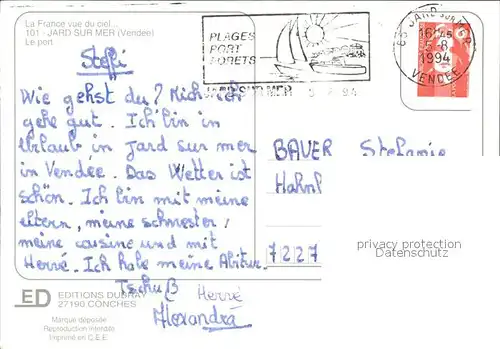 La France vue du ciel...
101 - JARD SUR MER (Vendée)
Le port
PLAGES
PORT
FORETS
JARD SUR MER 5 8 94
85 JARD SUR MER
16H45
5-8
1994
VENDEE
Steffi
Wie gehst du? Mich ich
gehe gut. Ich bin in
Urlaub in Jard sur mer
in Vendée. Das Wetter ist
schön. Ich bin mit meine
eltern, meine schwester,
meine cousine und mit
Hervé. Ich habe meine Abitur.
Tschuß Hervé
Alexandra
BAUER Stefanie
Hahnf
7227
privacy protection
Datenschutz
ED EDITIONS DUBRAY
27190 CONCHES
Marque déposée
Reproduction interdite
Imprimé en C.E.E.